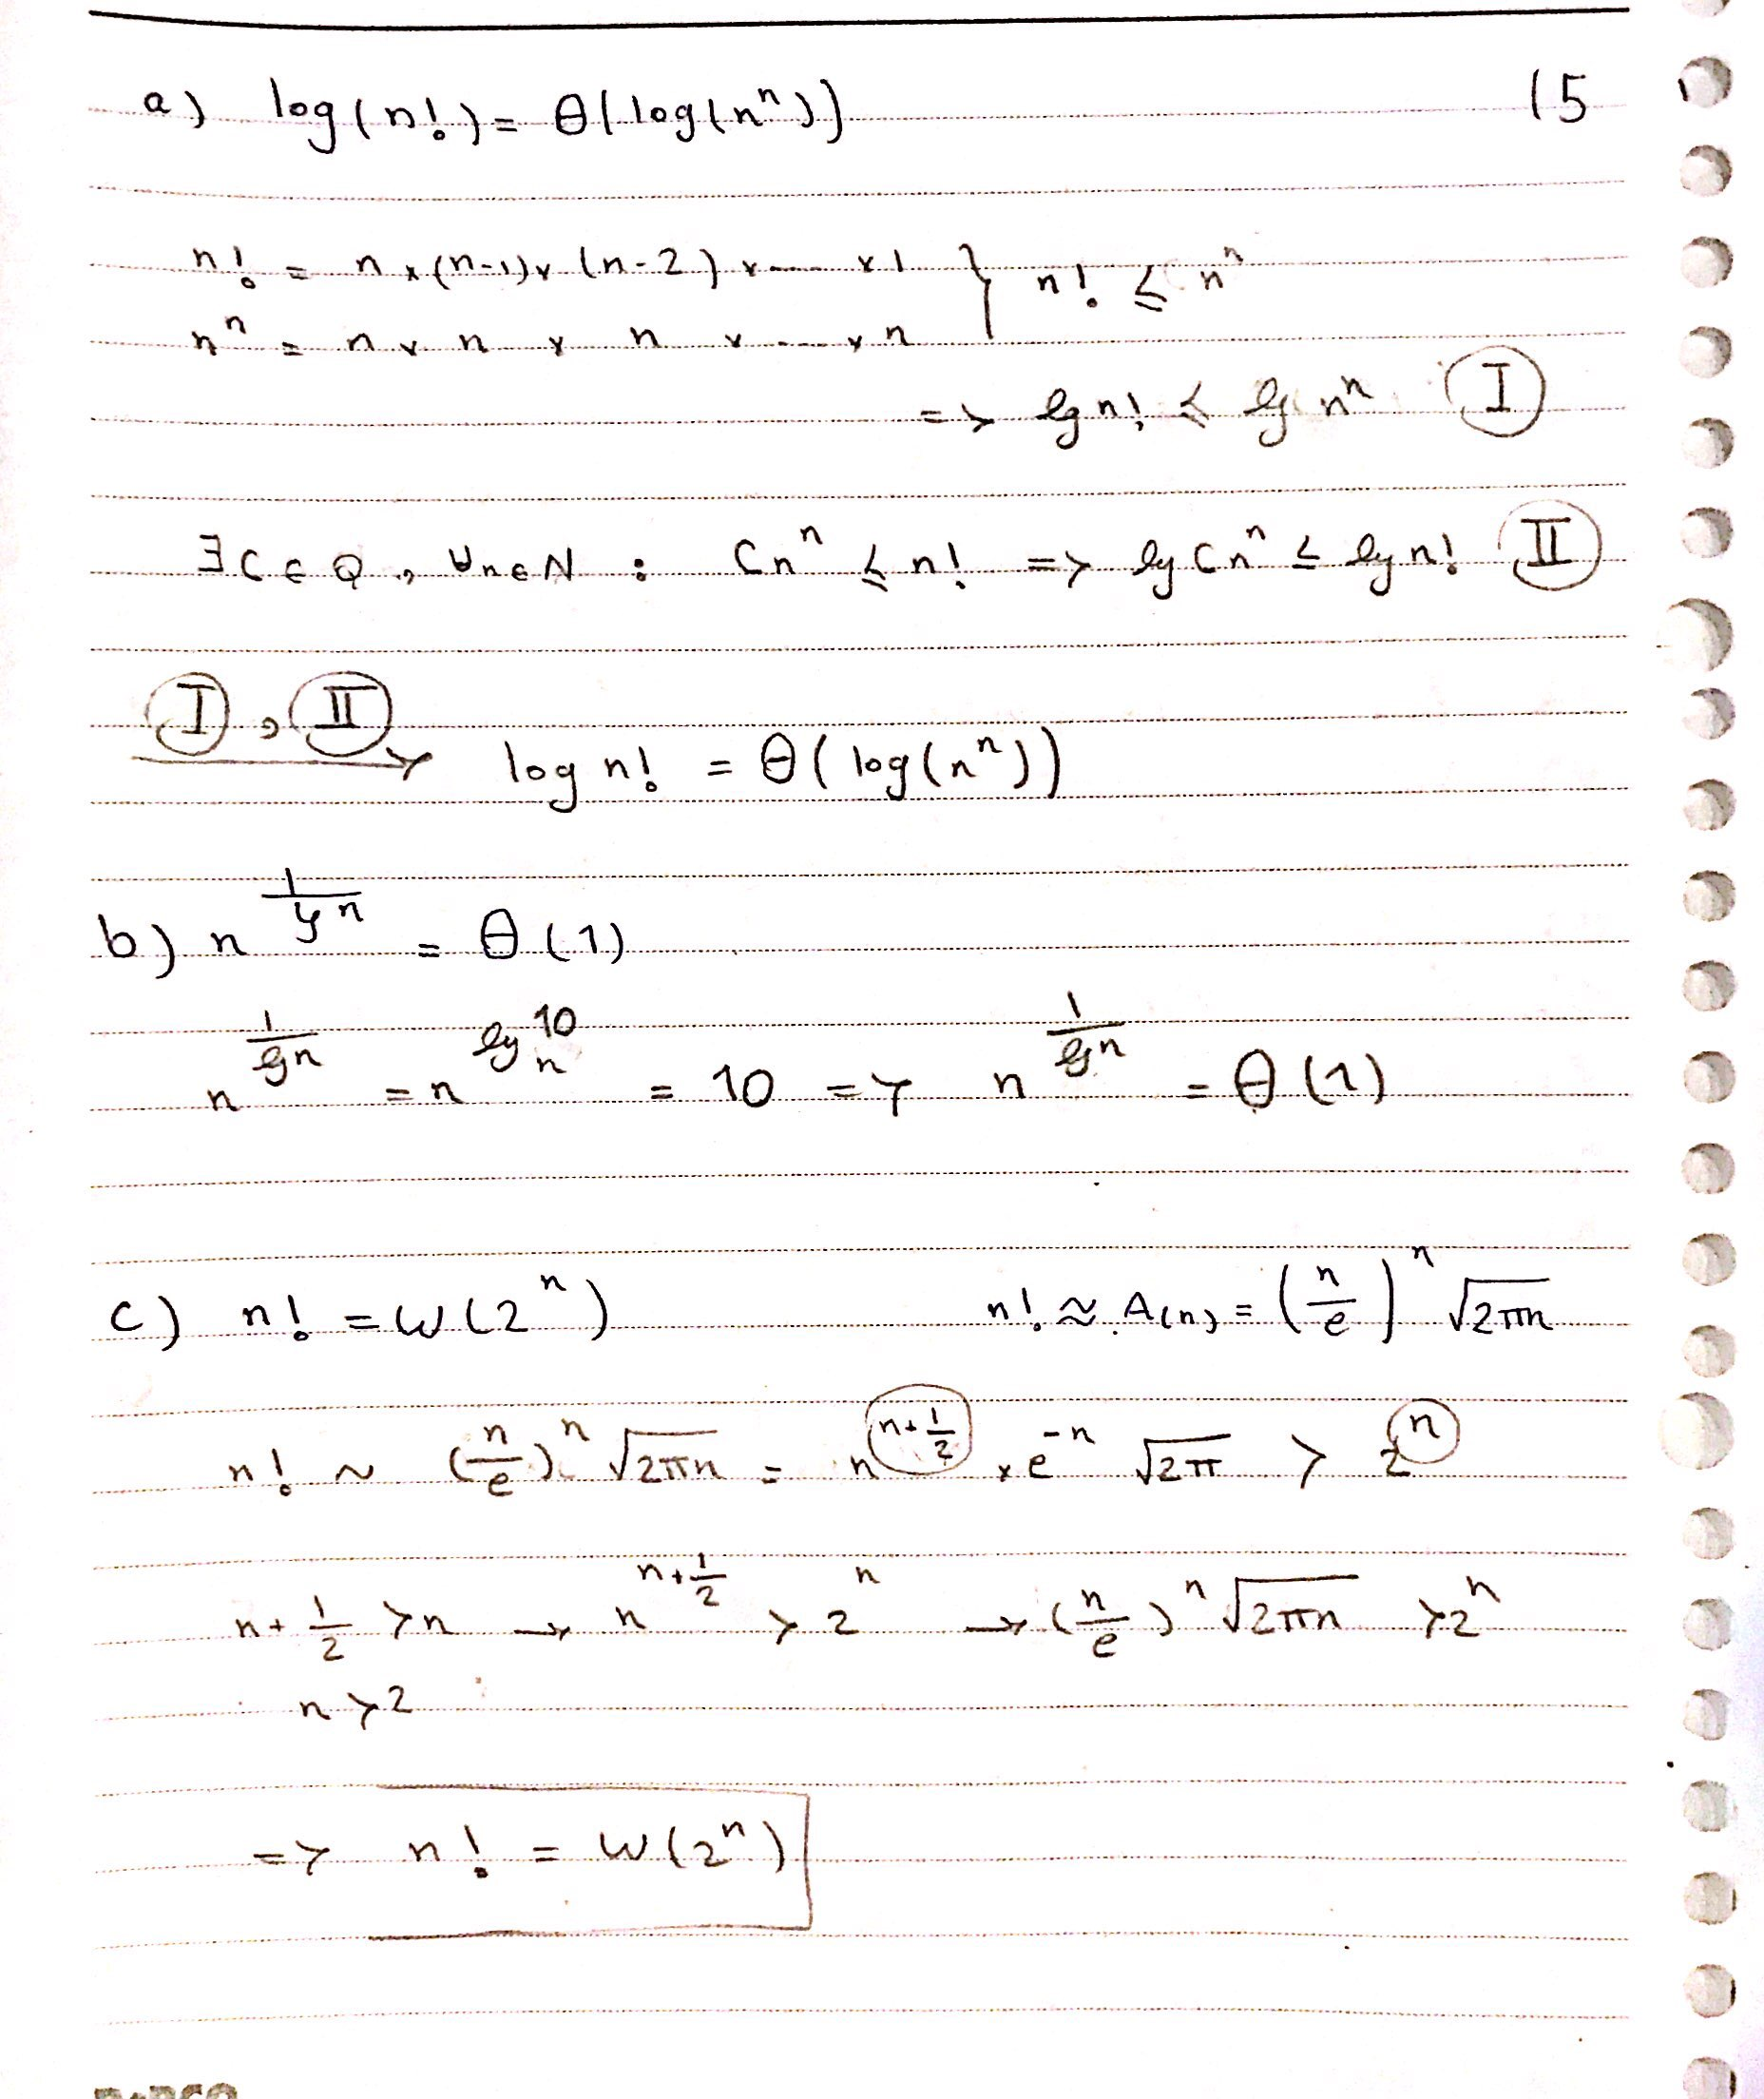 a) log(n!) = θ(log(n^n)) 15
n! = n × (n-1) × (n-2) × ... × 1 } n! ≤ n^n
n^n = n × n × n × ... × n
=> lg n! ≤ lg n^n I
∃C ∈ Q , ∀n∈N : Cn^n ≤ n! => lg Cn^n ≤ lg n! II
I , II → log n! = θ(log(n^n))
b) n^(1/lg n) = θ(1)
n^(1/lg n) = n^(lg_n 10) = 10 => n^(1/lg n) = θ(1)
c) n! = ω(2^n) n! ≈ A(n) = (n/e)^n √(2πn)
n! ~ (n/e)^n √(2πn) = n^(n+1/2) × e^(-n) √(2π) > 2^n
n + 1/2 > n → n^(n+1/2) > 2^n → (n/e)^n √(2πn) > 2^n
n > 2
=> n! = ω(2^n)